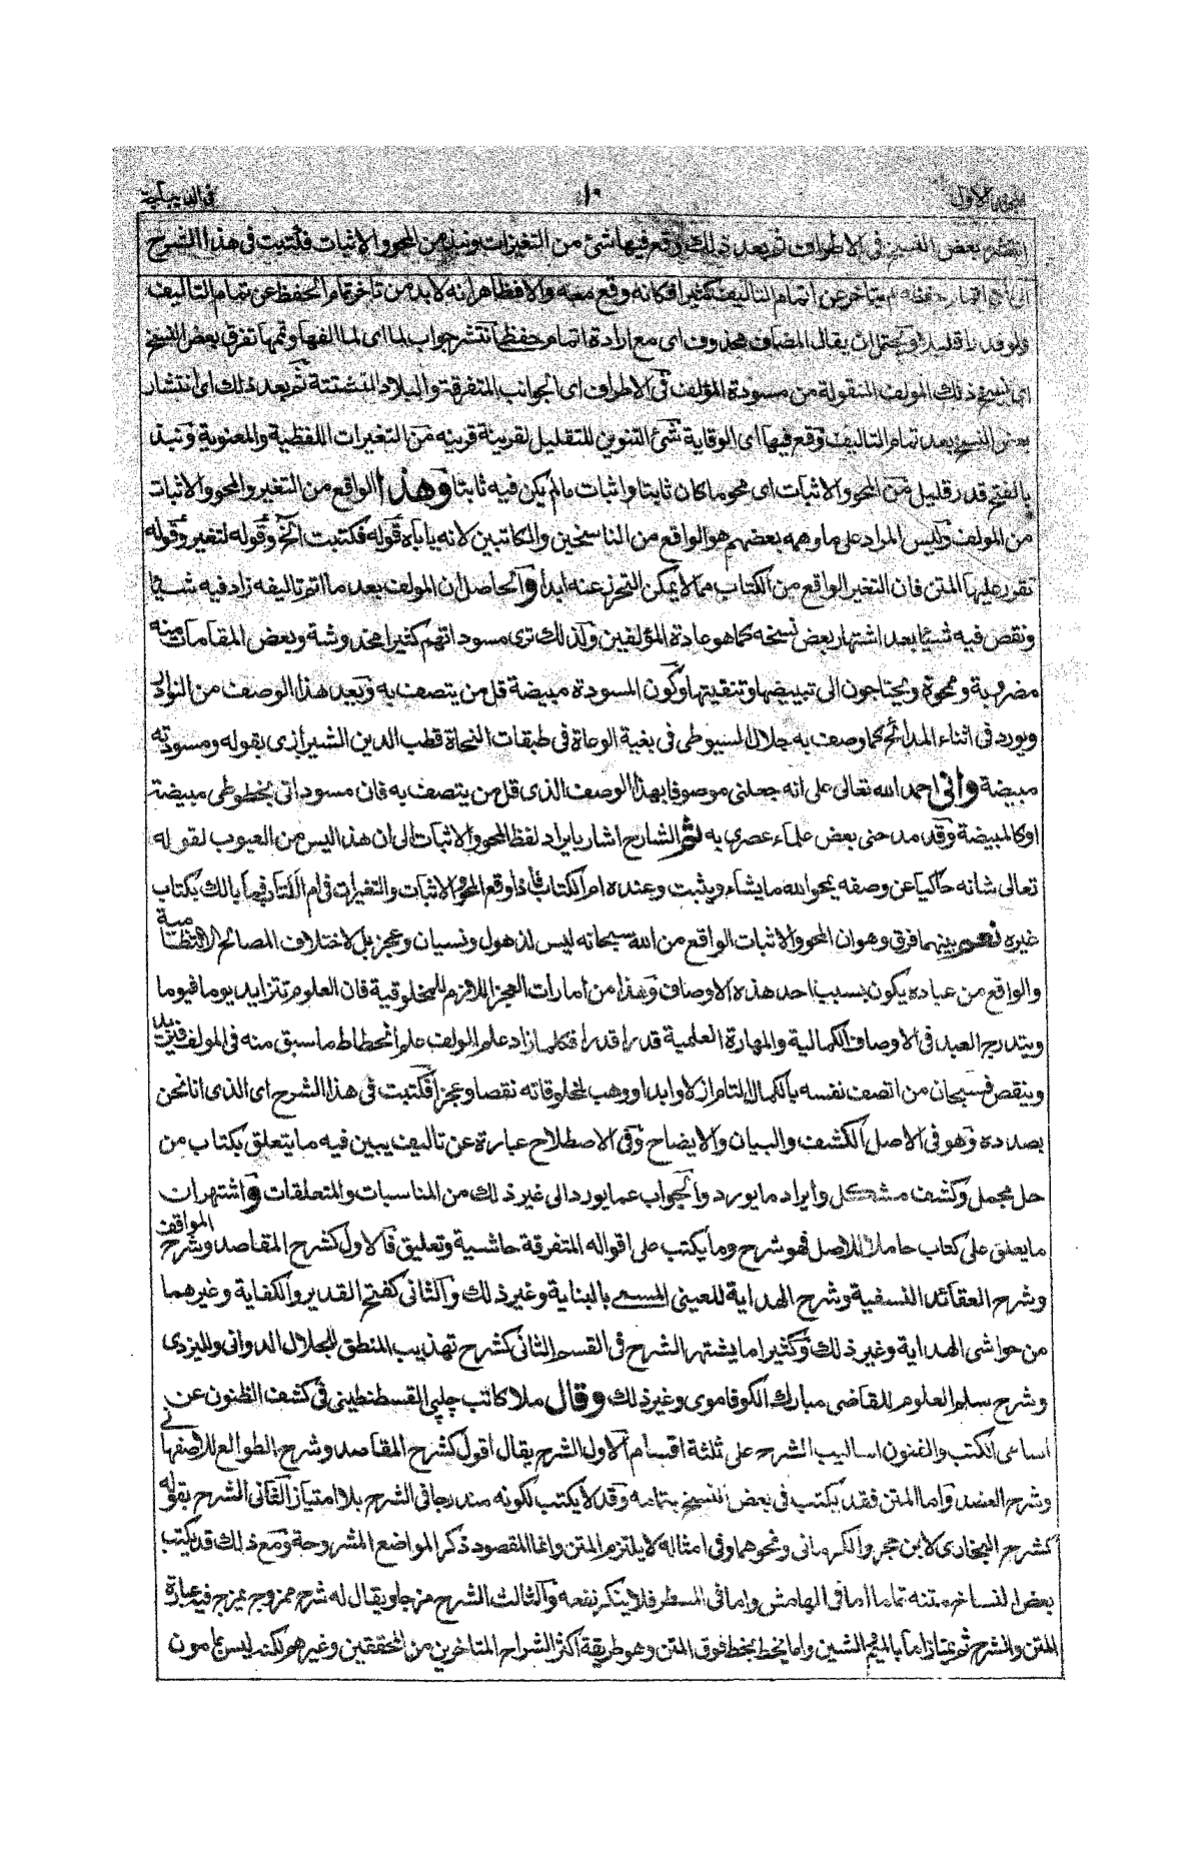 الاول
١٠
في الديباجة
انتشر بعض النسخ في الاطراف ثم بعد ذلك وقع فيها شئ من التغيرات ونبذ من المحو والاثبات فكتبت في هذا الشرح
اتمام حفظه متأخر عن اتمام التاليف كثيرا فكانه وقع معه والا فظاهر انه لا بد من تاخر تمام الحفظ عن تمام التاليف
ولو قدرا قليلا ويحتمل ان يقال المضاف محذوف اى مع ارادة اتمام حفظ انتشر جواب لما اى لما الفها وتمها تفرق بعض النسخ
اى نسخ ذلك المولف المنقولة من مسودة المؤلف في الاطراف اى الجوانب المتفرقة والبلاد المتشتتة ثم بعد ذلك اى انتشار
بعض النسخ بعد تمام التاليف وقع فيها اى الوقاية شئ التنوين للتقليل لقرينة قرينه من التغيرات اللفظية والمعنوية ونبذ
بالفتح قدر قليل من المحو والاثبات اى محو ما كان ثابتا واثبات ما لم يكن فيه ثابتا وهذا الواقع من التغير والمحو والاثبات
من المولف وليس المراد على ما وهمه بعضهم هو الواقع من الناسخين والكاتبين لانه ياباه قوله فكتبت الخ وقوله لتغير وقوله
تقرر عليها المتن فان التغير الواقع من الكتاب مما لا يمكن التحرز عنه ابدا والحاصل ان المولف بعد ما اتم تاليفه زاد فيه شيئا
ونقص فيه شيئا بعد اشتهار بعض نسخه كما هو عادة المؤلفين ولذلك ترى مسوداتهم كثيرا مخدوشة وبعض المقامات منه
مضروبة وممحوة ويحتاجون الى تبييضها وتنقيتها وكون المسودة مبيضة قل من يتصف به ويعد هذا الوصف من النوادر
ويورد في اثناء المدائح كما وصف به جلال السيوطي في بغية الوعاة في طبقات النحاة قطب الدين الشيرازى بقوله ومسودته
مبيضة وانى احمد الله تعالى على انه جعلنى موصوفا بهذا الوصف الذى قل من يتصف به فان مسوداتى بخطوطى مبيضة
او كالمبيضة وقد مدحنى بعض علماء عصرى به ثم الشارح اشار بايراد لفظ المحو والاثبات الى ان هذا ليس من العيوب لقوله
تعالى شانه حاكيا عن وصفه يمحو الله ما يشاء ويثبت وعنده ام الكتاب فاذا وقع المحو والاثبات والتغيرات في ام الكتاب فما بالك بكتاب
غيره نعم بينهما فرق وهو ان المحو والاثبات الواقع من الله سبحانه ليس لذهول ونسيان وعجز بل لاختلاف المصالح الانتظامية
والواقع من عباده يكون بسبب احد هذه الاوصاف وهذا من أمارات العجز اللازم للمخلوقية فان العلوم تتزايد يوما فيوما
ويتدرج العبد في الاوصاف الكمالية والمهارة العلمية قدرا قدرا فكلما زاد علم المولف علم انحطاط ما سبق منه في المولف فيزيد
وينقص فسبحان من اتصف نفسه بالكمال التام ازلا وابدا ووهب لمخلوقاته نقصا وعجزا فكتبت في هذا الشرح اى الذى انا نحن
بصدده وهو في الاصل الكشف والبيان والايضاح وفي الاصطلاح عبارة عن تاليف يبين فيه ما يتعلق بكتاب من
حل مجمل وكشف مشكل وايراد ما يورد والجواب عما يورد الى غير ذلك من المناسبات والمتعلقات واشتهر ان
ما يعلق على كتاب حاملا للاصل فهو شرح وما يكتب على اقواله المتفرقة حاشية وتعليق فالاول كشرح المقاصد وشرح المواقف
وشرح العقائد النسفية وشرح الهداية للعينى المسمى بالبناية وغير ذلك والثانى كفتح القدير والكفاية وغيرهما
من حواشى الهداية وغير ذلك وكثيرا ما يشتهر الشرح في القسم الثانى كشرح تهذيب المنطق للجلال الدوانى ولليزدى
وشرح سلم العلوم للقاضى مبارك الكوفاموى وغير ذلك وقال ملا كاتب چلپى القسطنطينى في كشف الظنون عن
اسامى الكتب والفنون اساليب الشرح على ثلثة اقسام الاول الشرح بقال اقول كشرح المقاصد وشرح الطوالع للاصفهانى
وشرح العضد واما المتن فقد يكتب في بعض النسخ بتمامه وقد لا يكتب لكونه مندرجا في الشرح بلا امتياز الثانى الشرح بقوله
كشرح البخارى لابن حجر والكرمانى ونحوهما وفي امثاله لا يلتزم المتن وانما المقصود ذكر المواضع المشروحة ومع ذلك قد يكتب
بعض النساخ متنه تماما اما في الهامش واما في المسطر فلا ينكر نفعه والثالث الشرح مزجا ويقال له شرح ممزوج يمزج فيه عبارة
المتن والشرح ثم يمتاز اما بالميم والشين واما بخط يخط فوق المتن وهو طريقة اكثر الشراح المتاخرين من المحققين وغيرهم لكنه ليس بمامون